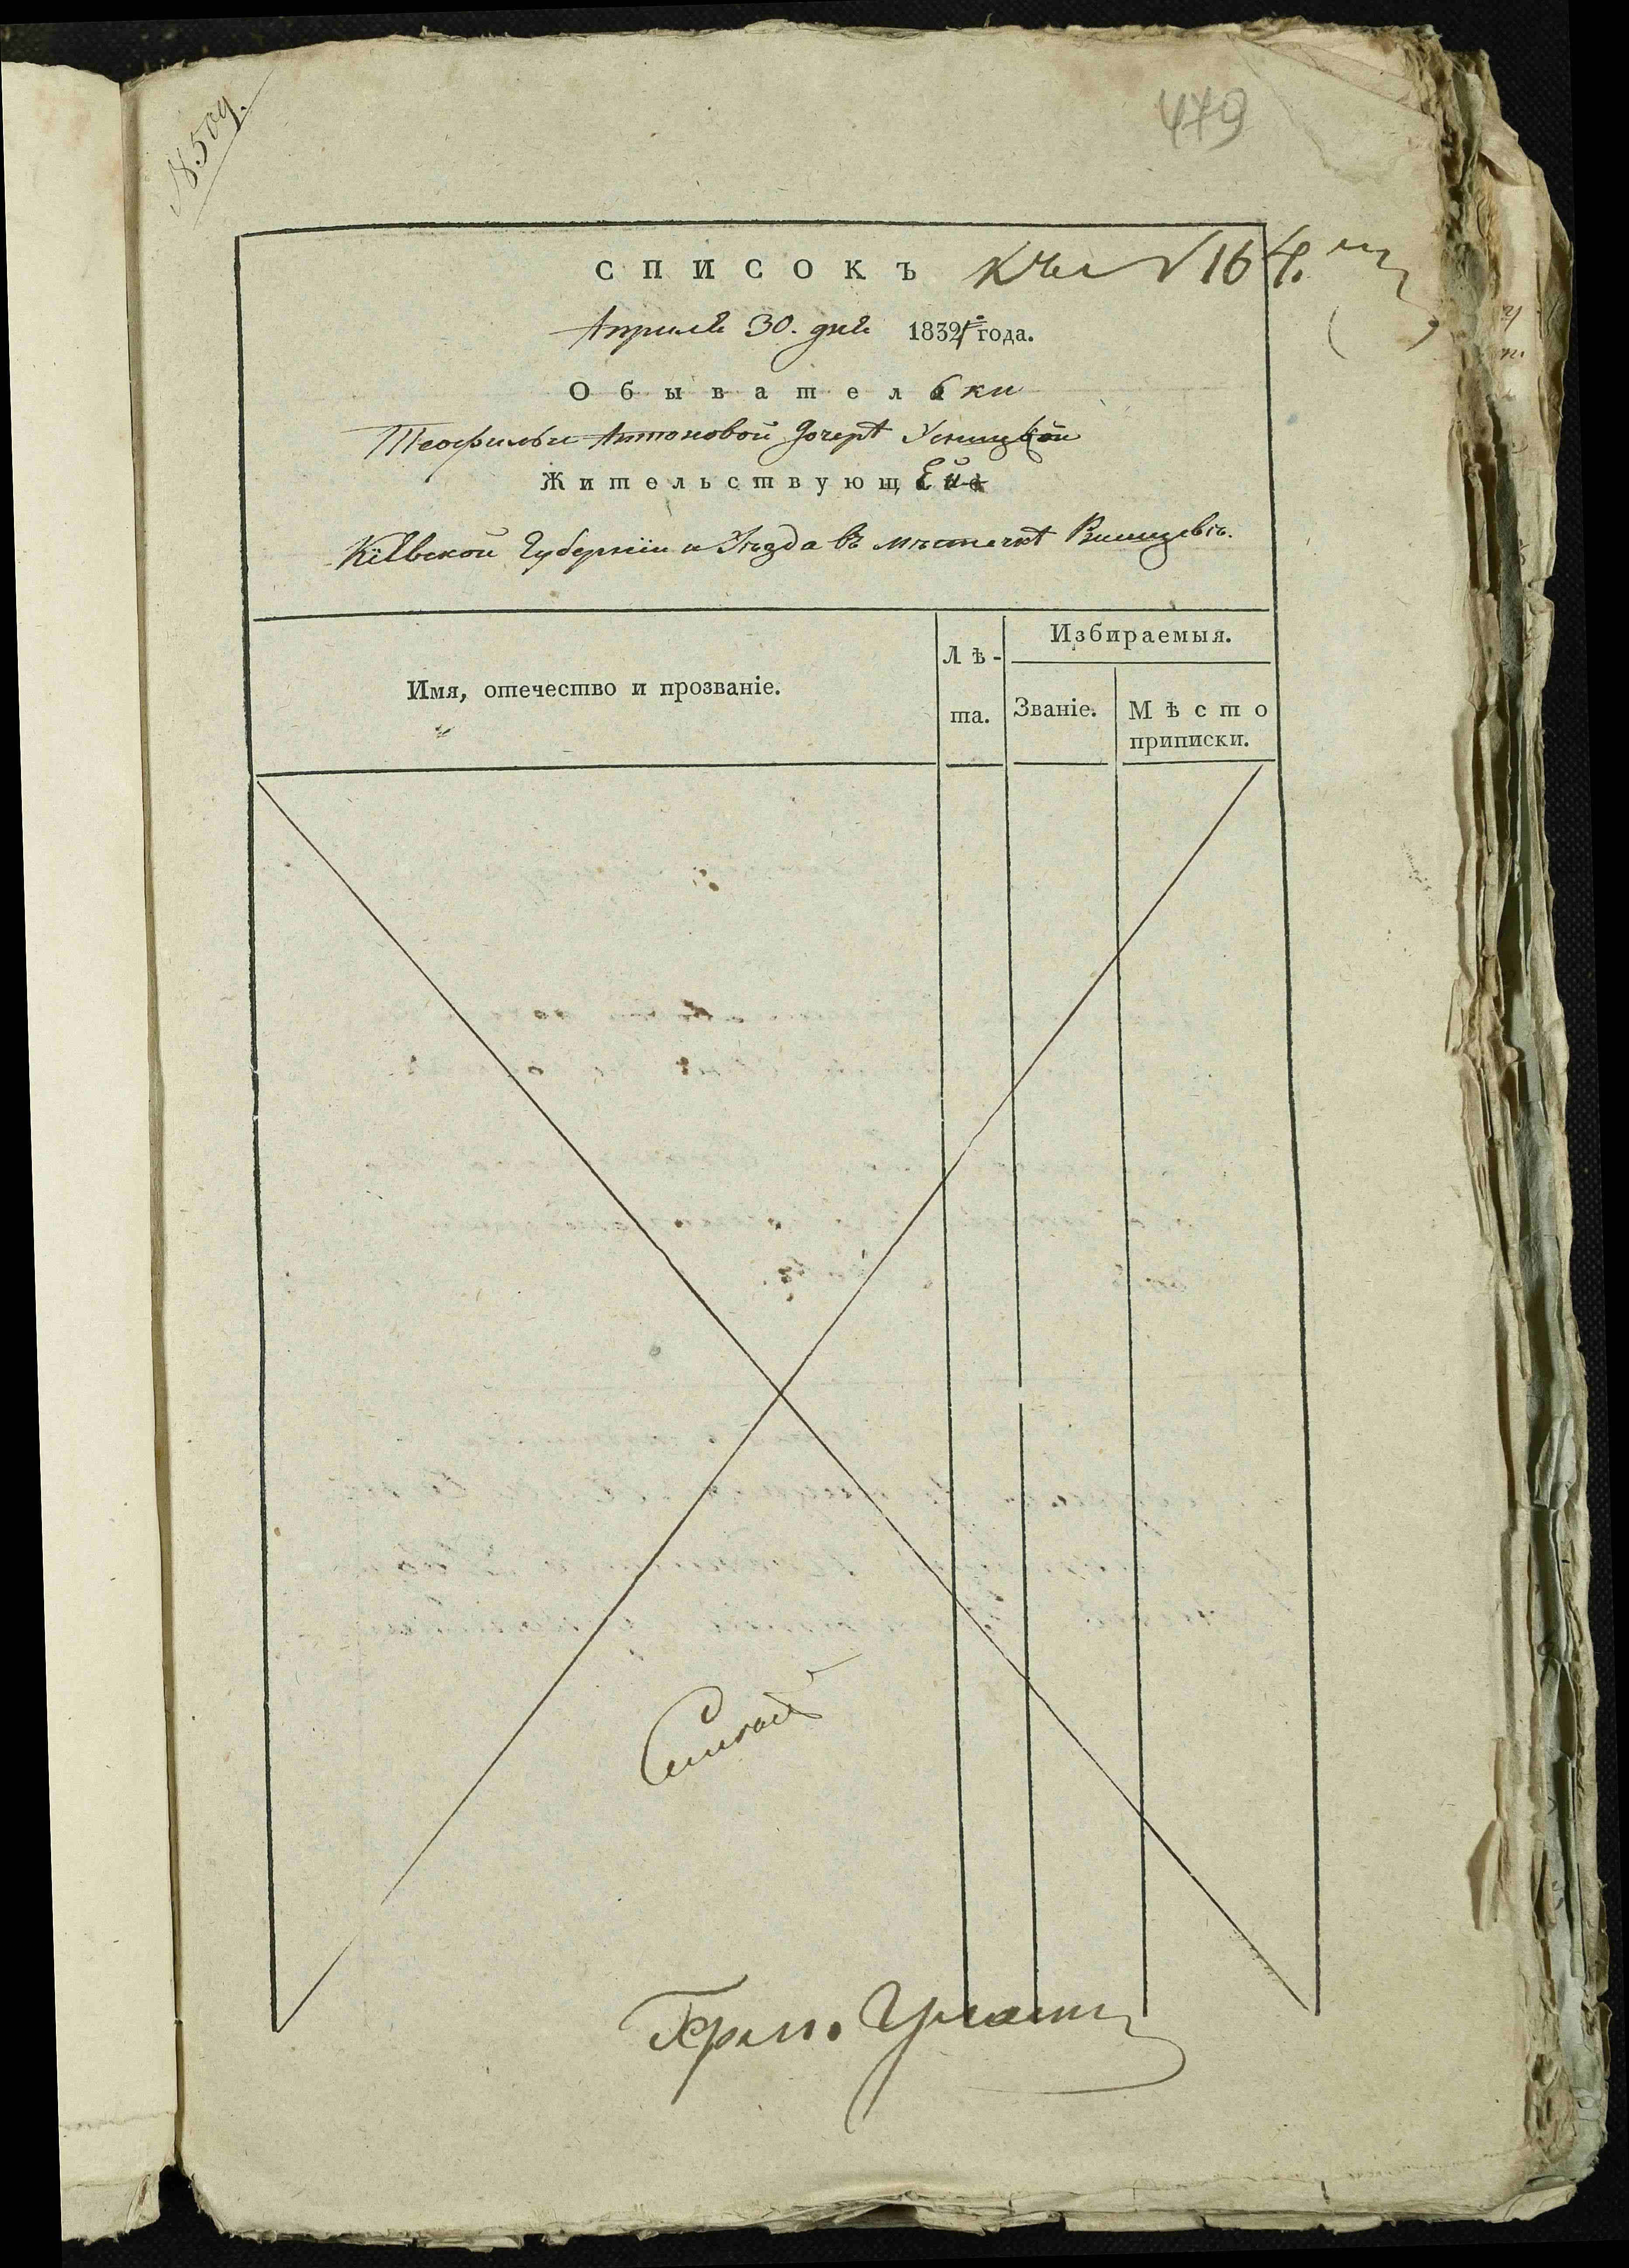 № 509.
479
СПИСОКЪ къ № 164.
Апреля 30. дня 1832 года.
Обывательки
Теофильи Антоновой дочерѣ
Жительствующей
Кіевской Губерніи и Уѣзда въ мѣстечкѣ
Имя, отечество и прозваніе.
Лѣ-
та.
Избираемыя.
Званіе.
Мѣсто
приписки.